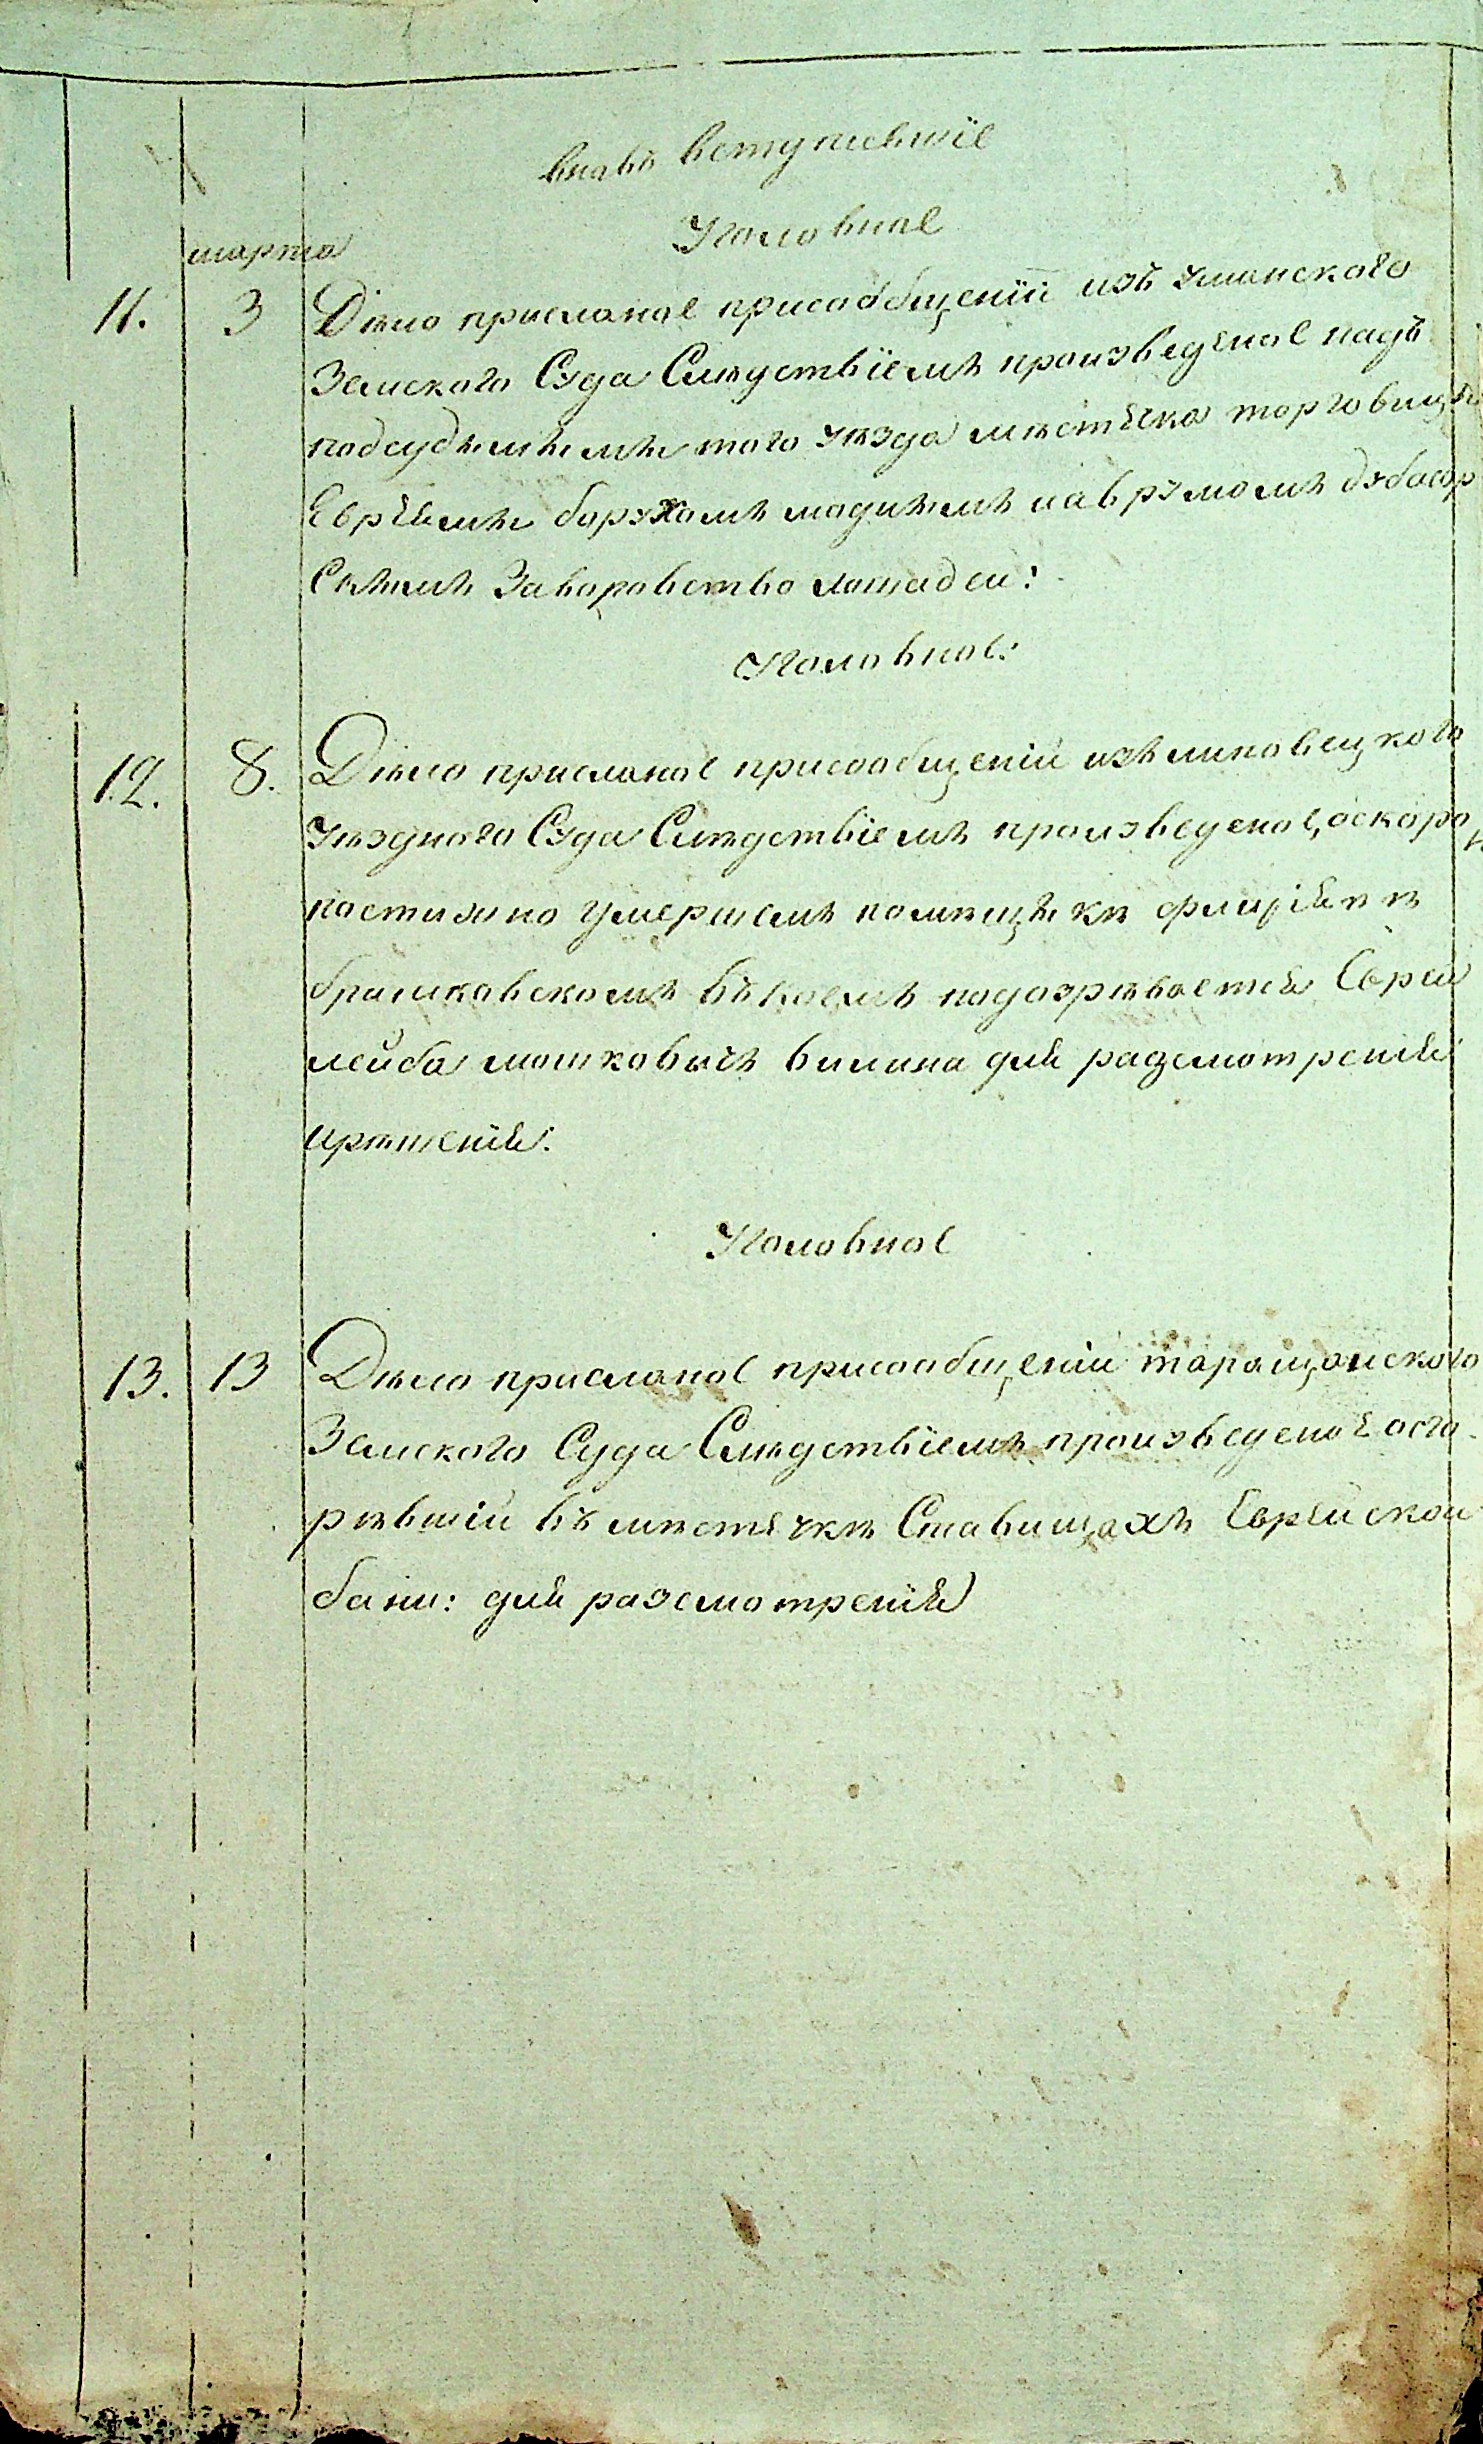 вновь вступившїе
Уголовное
марта
11. 3 Дѣло присланое присообщенїи изъ уманского
Земского Суда Слѣдствїемъ произведеное надъ
подсудимыми того уѣзда мѣстечка торговицы
Евреями борухомъ и аврумомъ дубасор
Скимъ Заворовство лошадеи:
Уголовное:
12. 8. Дѣло присланое присообщенїи изъ липовецкого
уѣздного Суда Слѣдствїемъ произведеное, оскоро
постижно умершемъ помещике
брашковскомъ въкоемъ подозрѣвается Еврей
лейба мошковичъ для разсмотренїя
ирѣшенїя:
Уголовное
13. 13 Дѣло присланое присообщенїи таращанского
Земского Суда Слѣдствїемъ произведеное осго-
рѣвшїи въ мѣстечкѣ Ставищахъ Еврейскои
бани: для разсмотренїя